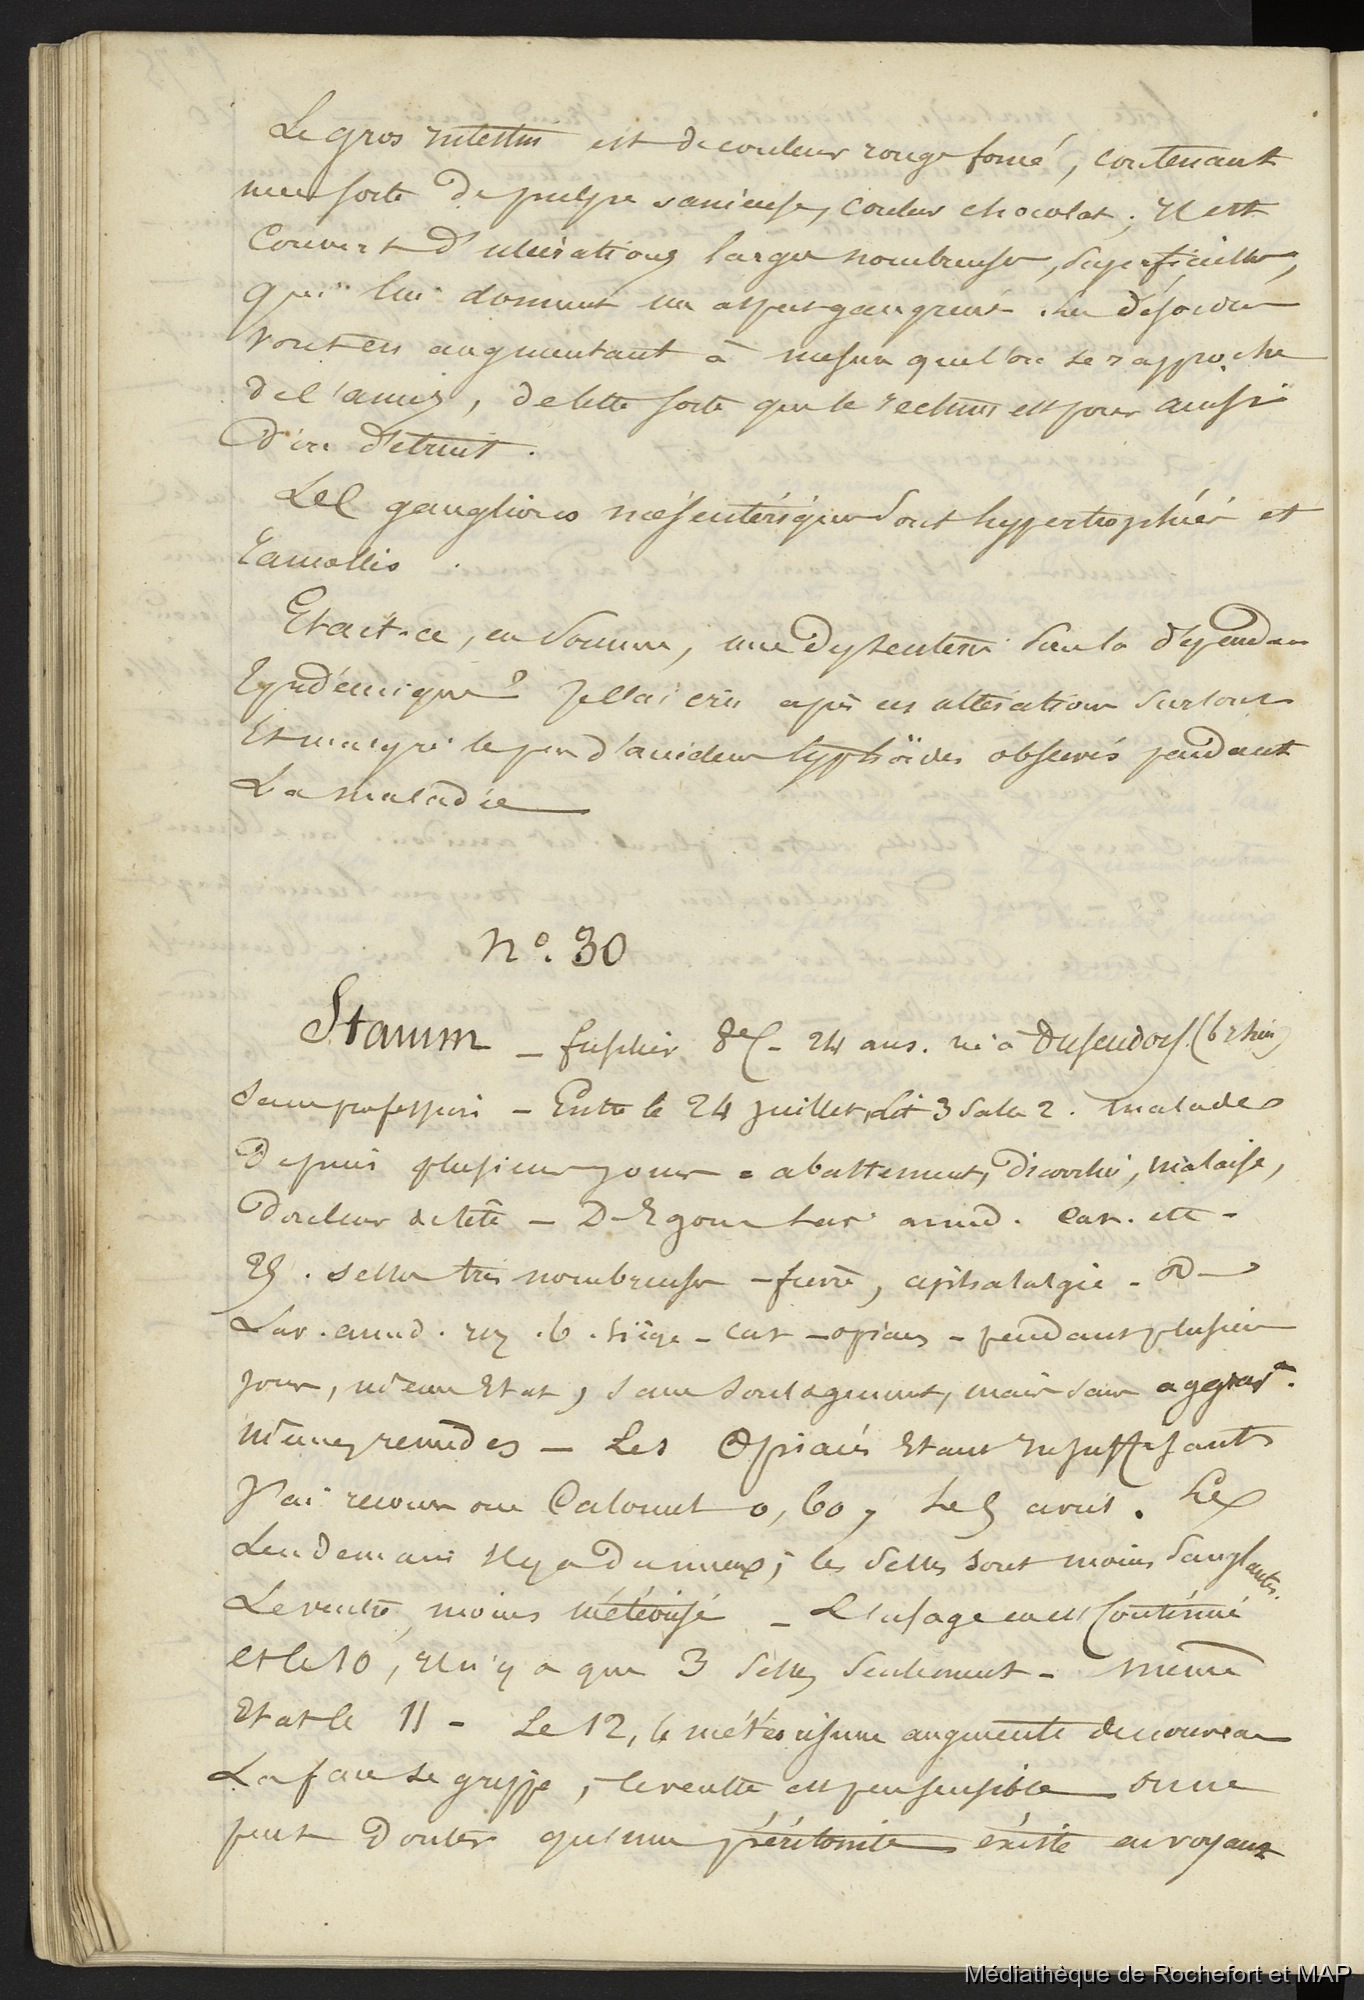 Le gros intestin est de couleur rouge foncé, contenant
une sorte de pulpe sanieuse, couleur chocolat ; il est
Couvert d'ulcérations larges nombreuses, superficielles,
qui lui donnent un aspect gangrené. Les désordres
vont en augmentant à mesure que l'on se rapproche
de l'anus, de telle sorte que le rectum est pour ainsi
dire détruit.
Les ganglions mésentériques sont hypertrophiés et
ramollis.
Etait-ce, en somme, une dysenterie sous la dépendance
Epidémique ? Je l'ai cru après ces altérations surtout
Et malgré le peu d'accidens typhoïdes observés pendant
La maladie
N°. 30
Stamm – fusilier 8e – 24 ans. né à Dusendorf (b rhin)
Sans profession – Entre le 24 juillet, lit 3 salle 2. malade
Depuis plusieurs jours = abattement, diarrhée, malaise,
Douleur de tête – D. Rgom. Lav. amid. Cat. etc –
25. selles très nombreuses – fièvre, céphalalgie –
Lav. amid. inj. b. siège – cat – opiacé – pendant plusieurs
jours, même Etat, sans soulagement, mais sans aggravon.
mêmes remèdes – Les Opiacés Etant insuffisants
J'ai recours au Calomel 0,60, Le 5 avril. Le
Lendemain il y a du mieux ; les selles sont moins sanglantes.
Le ventre moins météorisé – L'usage en est continué
et le 10, il n'y a que 3 selles seulement – même
Etat le 11 – Le 12, le météorisme augmente de nouveau
La face se grippe, le ventre est peu sensible on ne
peut douter qu'une péritonite existe en voyant
Médiathèque de Rochefort et MAP